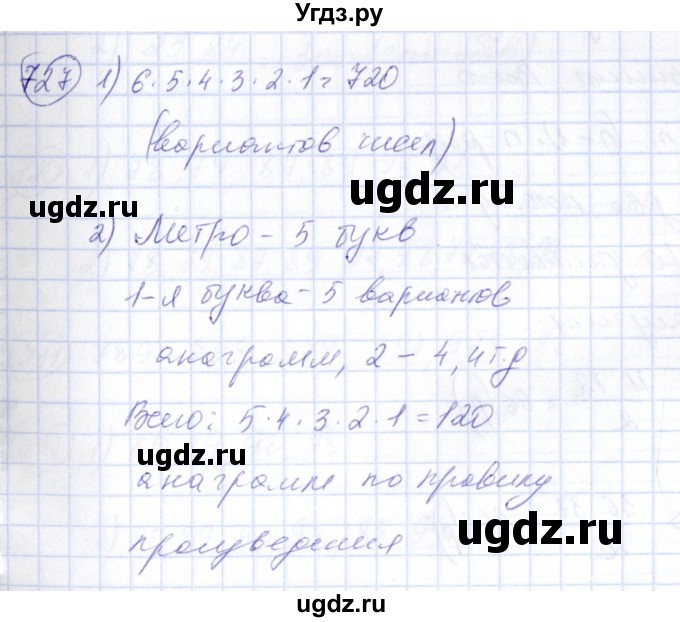 Угдз.ру
727 1) 6·5·4·3·2·1=720
(вариантов чисел)
ugdz.ru
ugdz.ru
2) Метро – 5 букв
1-я буква – 5 вариантов
анаграмм, 2 – 4, и т.д
Всего: 5·4·3·2·1=120
ugdz.ru
анаграмм по правилу
ugdz.ru
произведения
ugdz.ru